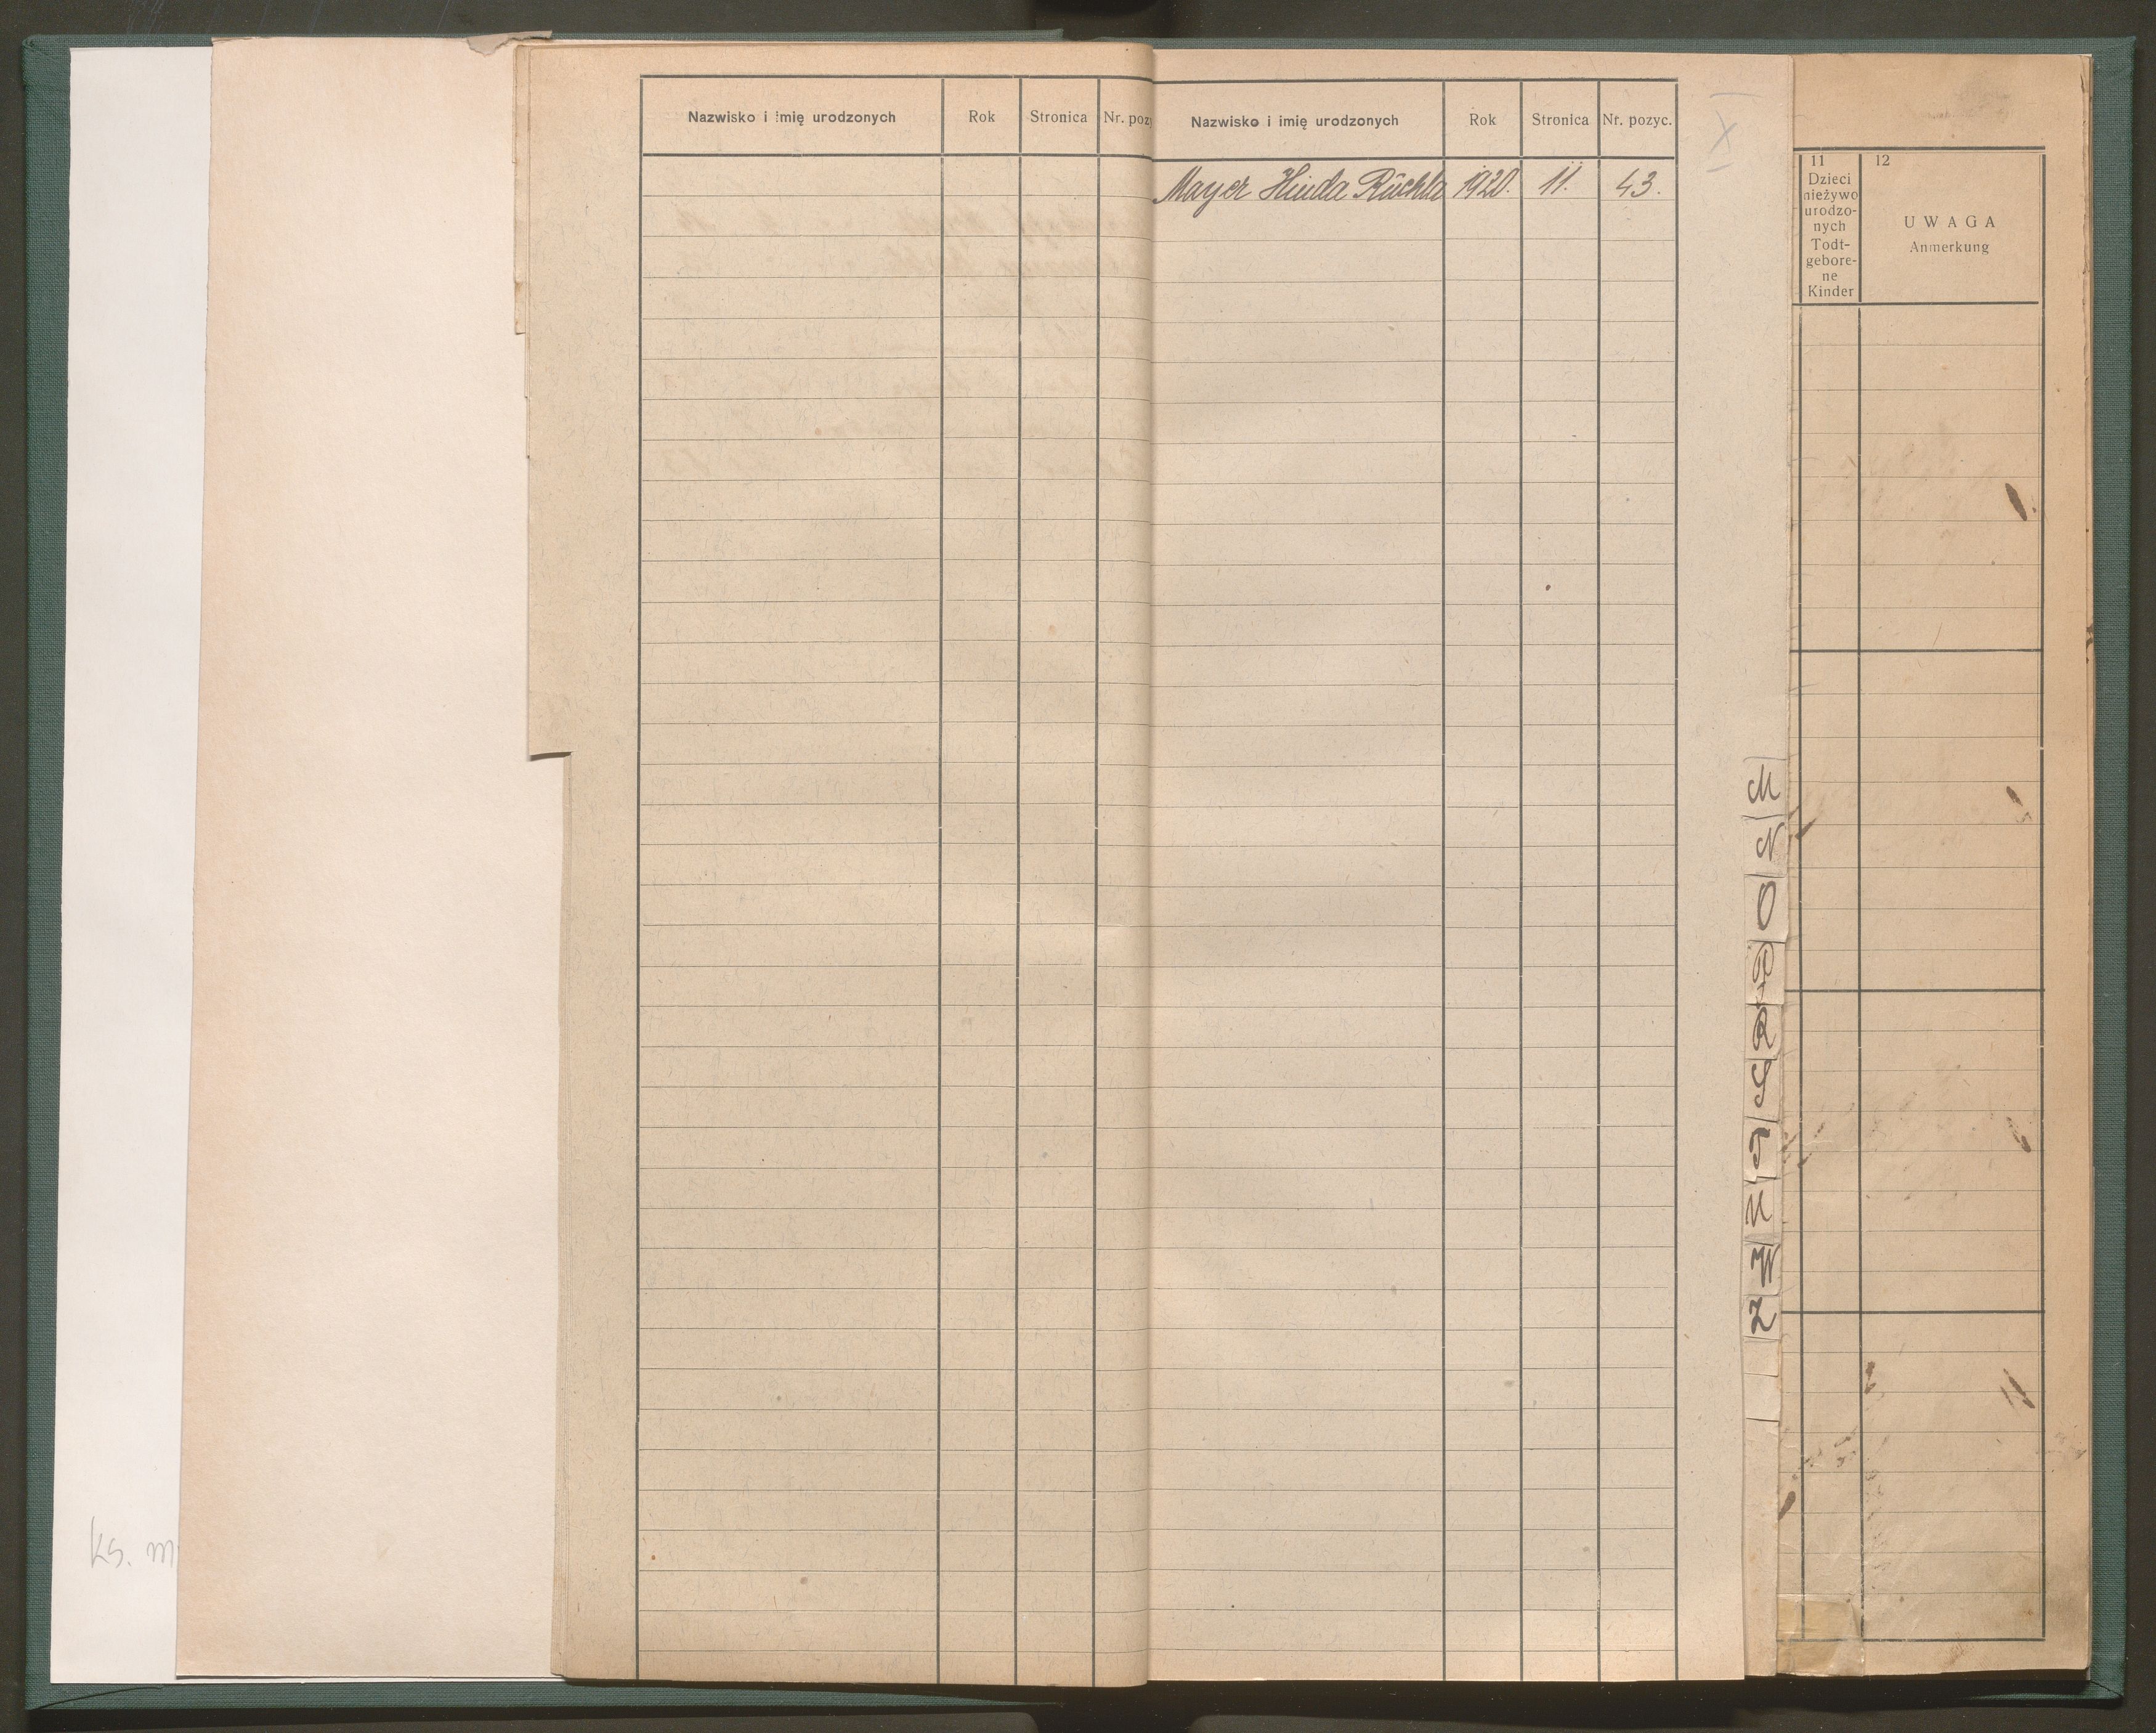 Nazwisko i imię urodzonych Rok Stronica Nr. poz
Nazwisko i imię urodzonych Rok Stronica Nr. pozyc.
Mayer Hinda Rüchla 1920. 11. 43.
X
11
Dzieci
nieżywo
urodzo-
nych
Todt-
gebore-
ne
Kinder
12
UWAGA
Anmerkung
M
N
O
P
R
S
T
U
W
Z
ks. m